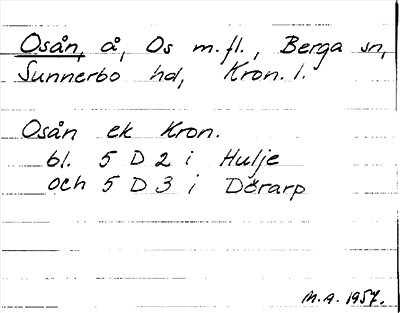 Osån, å, Os m.fl., Berga sn,
Sunnerbo hd, Kron. l.
Osån ek Kron.
bl. 5 D 2 i Hulje
och 5 D 3 i Dörarp
M.A. 1957.